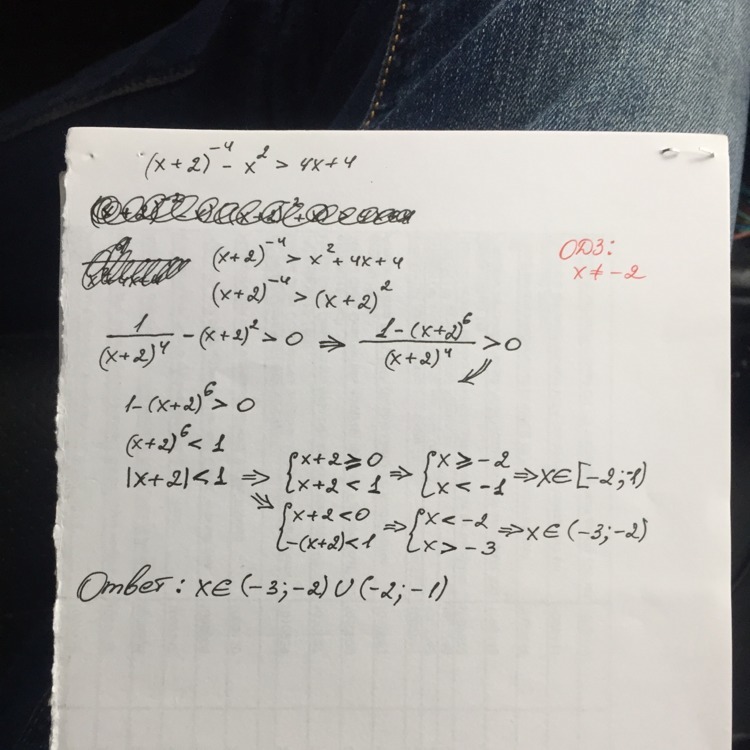 (x+2)^{-4} - x^2 > 4x+4
ОДЗ:
x ≠ -2
(x+2)^{-4} > x^2 + 4x + 4
(x+2)^{-4} > (x+2)^2
1/(x+2)^4 - (x+2)^2 > 0 ⇒ (1-(x+2)^6)/(x+2)^4 > 0
1-(x+2)^6 > 0
(x+2)^6 < 1
|x+2| < 1 ⇒ { x+2 ≥ 0 ; x+2 < 1 ⇒ { x ≥ -2 ; x < -1 ⇒ x ∈ [-2; -1)
⇒ { x+2 < 0 ; -(x+2) < 1 ⇒ { x < -2 ; x > -3 ⇒ x ∈ (-3; -2)
Ответ: x ∈ (-3; -2) ∪ (-2; -1)